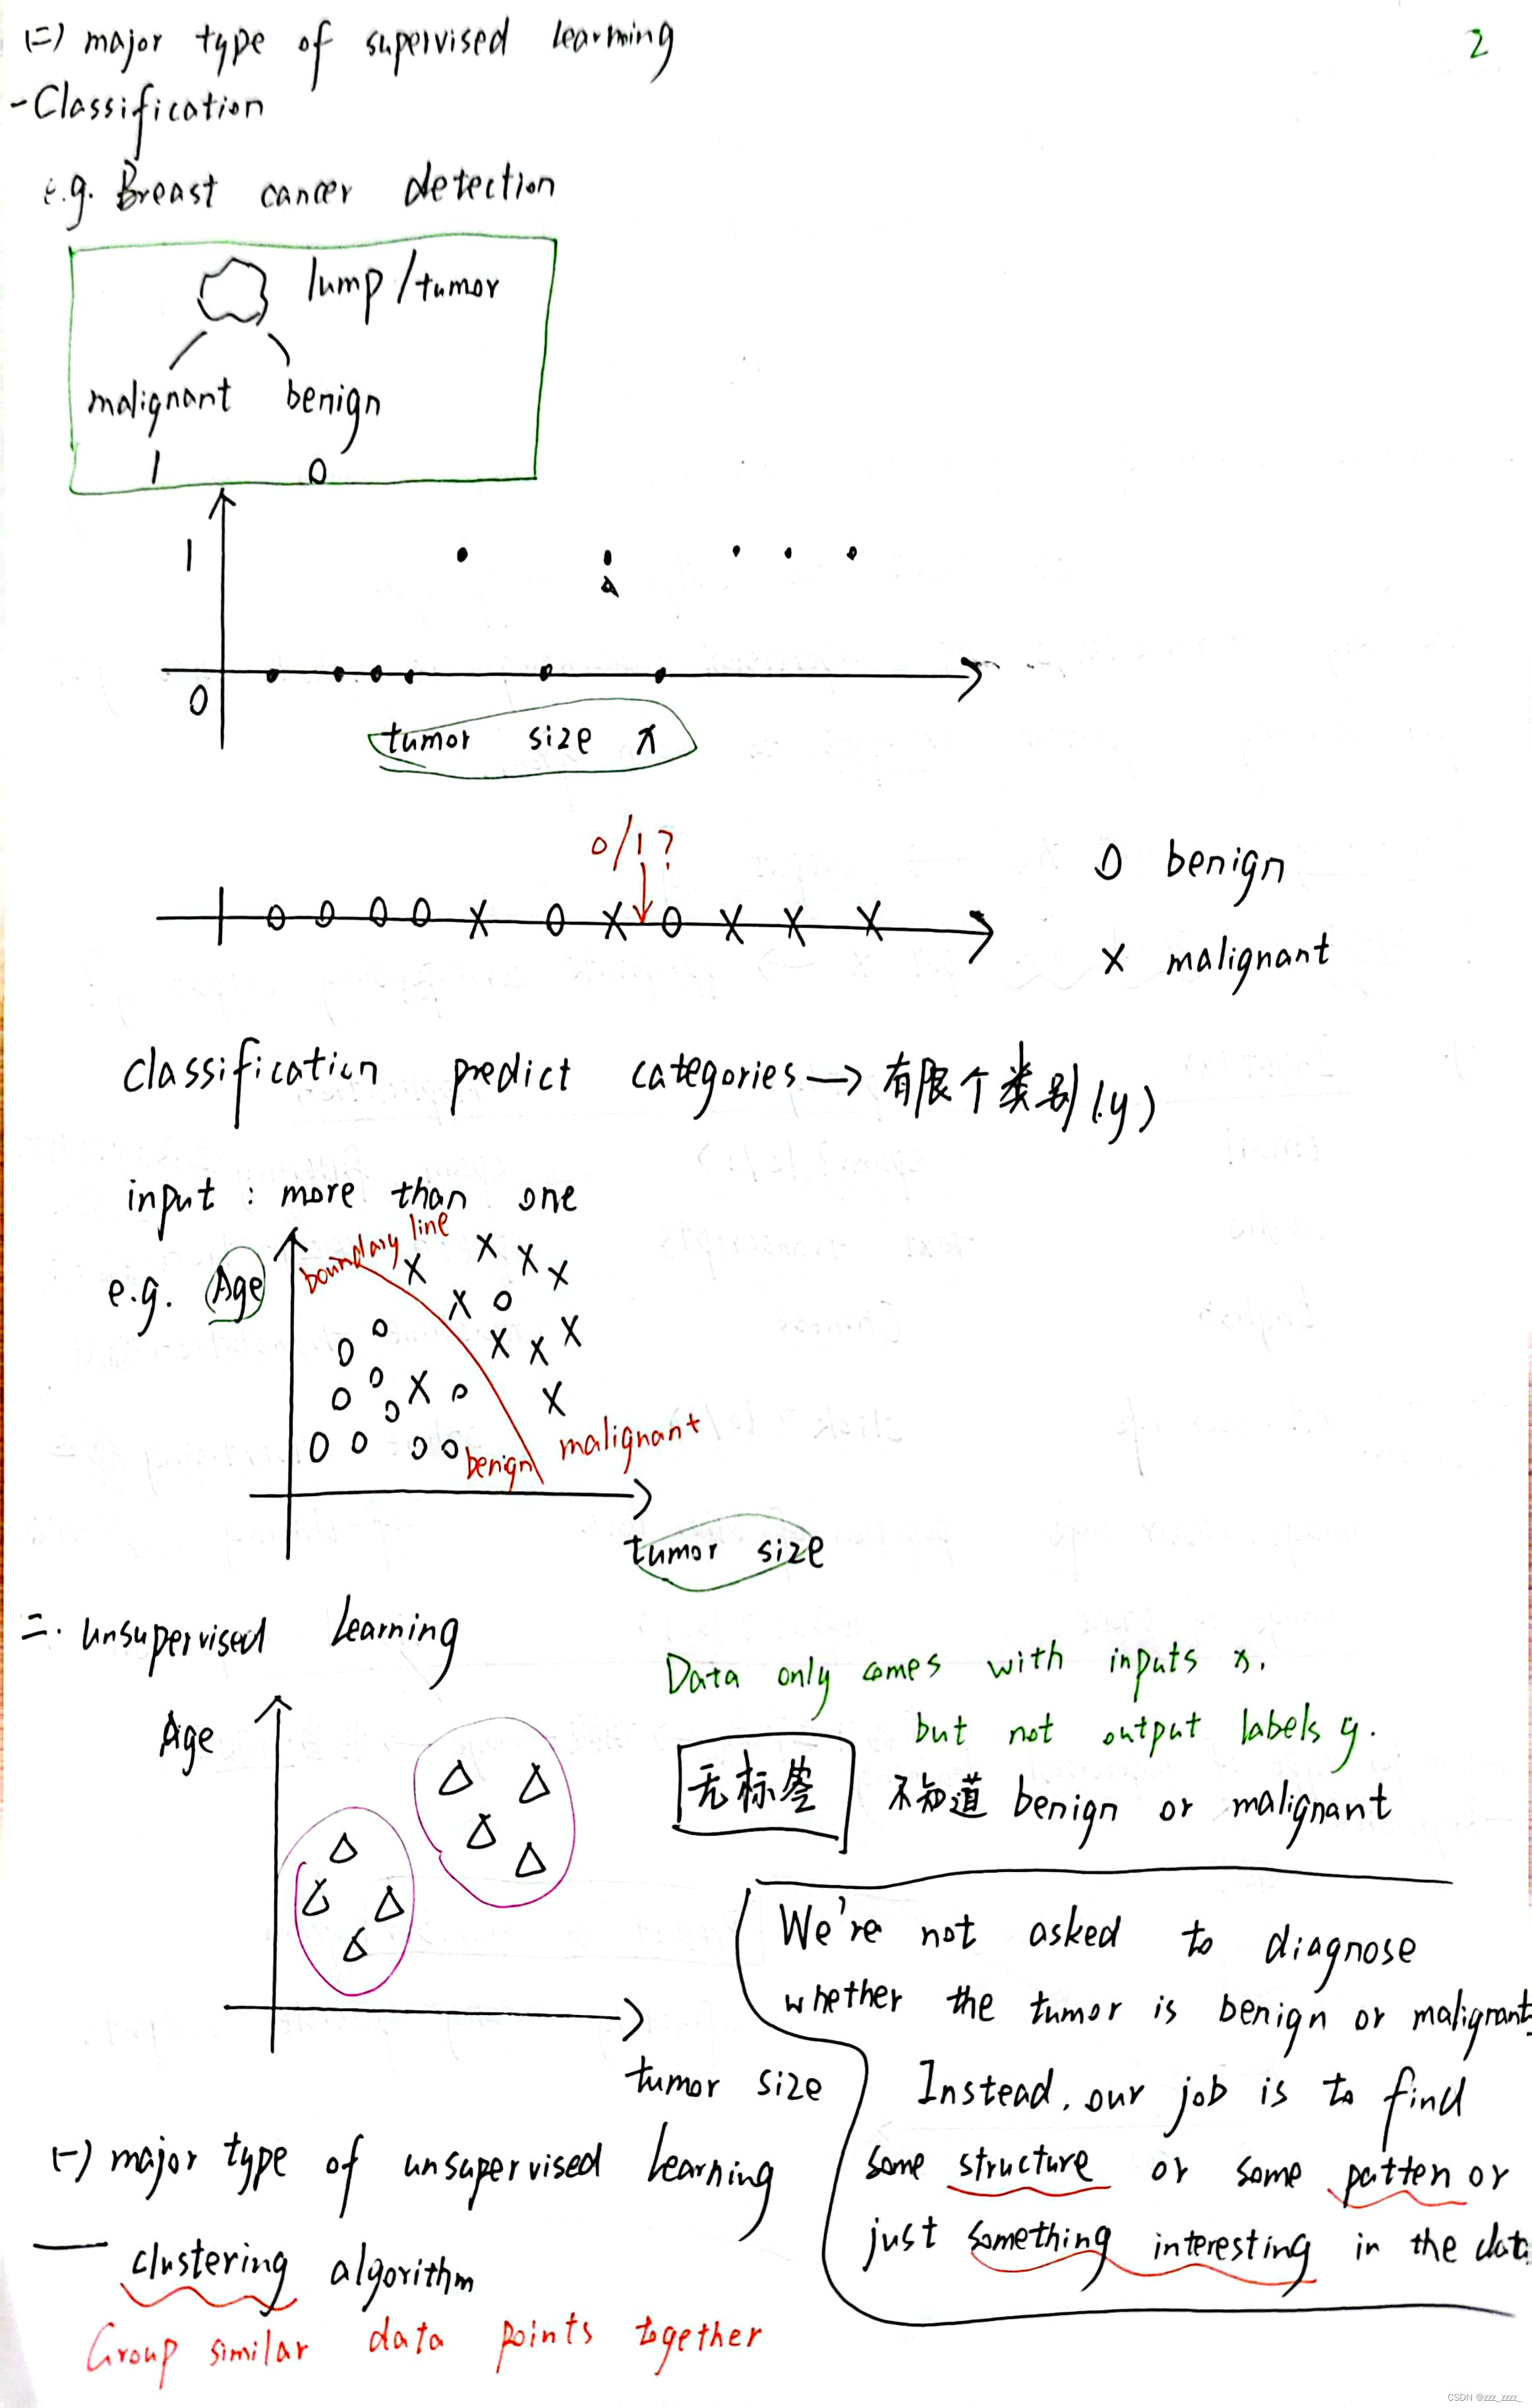 (二) major type of supervised learning
2
- Classification
e.g. Breast cancer detection
lump/tumor
malignant benign
1 0
1
0
tumor size x
0/1?
O benign
X malignant
classification predict categories → 有限个类别(y)
input : more than one
boundary line
e.g. Age
benign
malignant
tumor size
二. Unsupervised Learning
Data only comes with inputs x.
but not output labels y.
Age
无标签 不知道 benign or malignant
We're not asked to diagnose
whether the tumor is benign or malignant.
tumor size
Instead, our job is to find
some structure or some patten or
just something interesting in the data
(一) major type of unsupervised learning
— clustering algorithm
Group similar data points together
CSDN @zzz_zzzz_